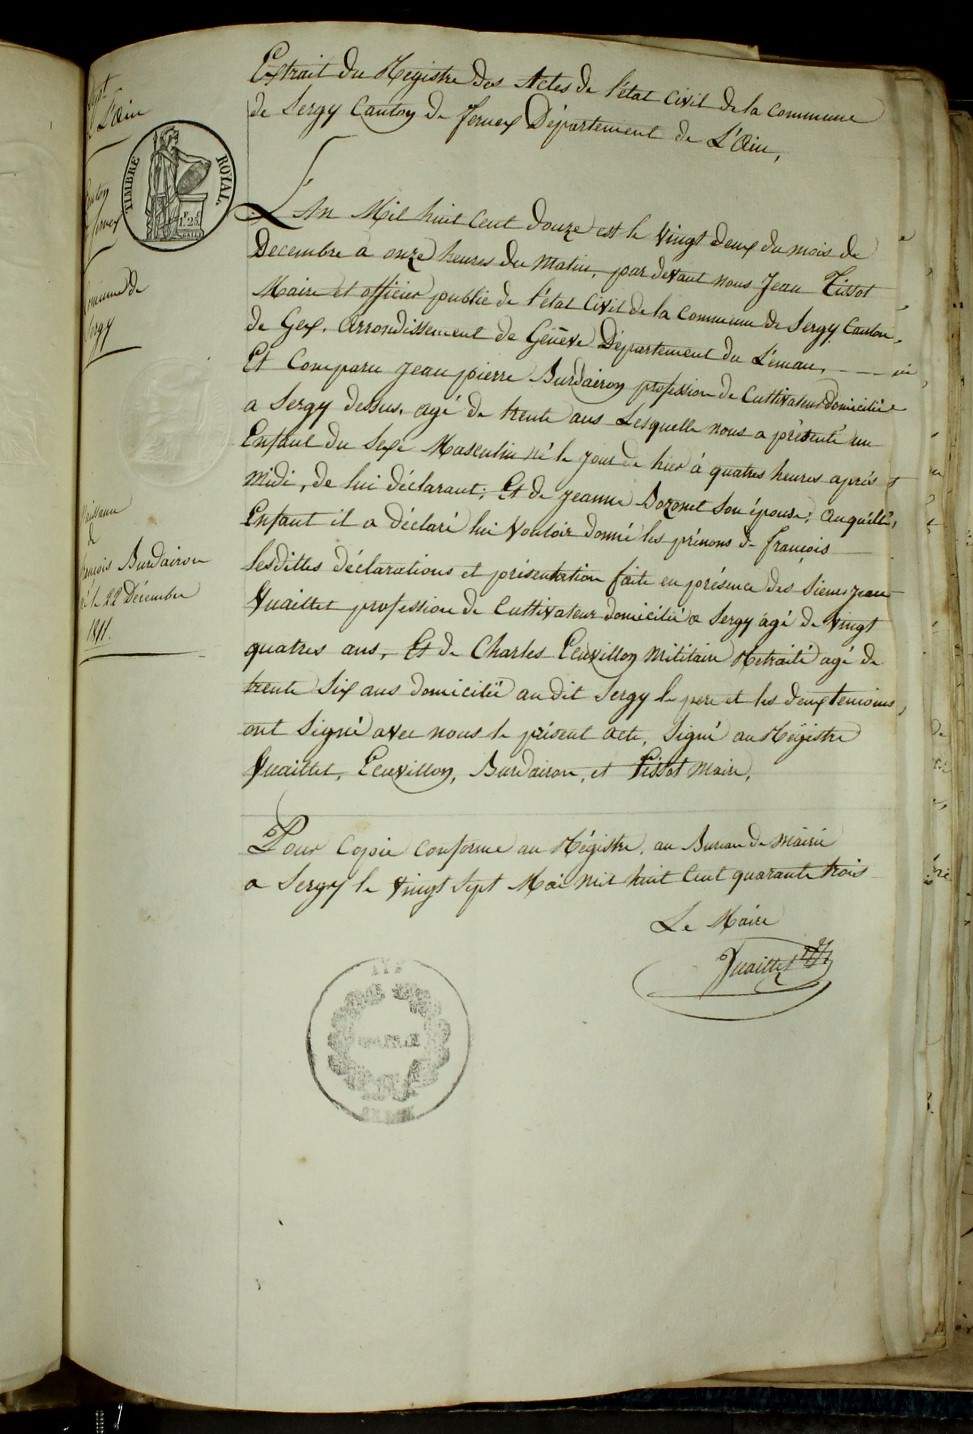 Extrait du Régistre des Actes de l'état Civil de la Commune
de Sergy Canton de Fernex Département de L'Ain,
L'Ain
TIMBRE ROYAL
Fernex
Commune de
Sergy
L'An Mil huit Cent douze est le vingt deux du mois de
Decembre à onze heures du Matin, par devant nous Jean Tissot
Maire et officier public de l'état Civil de la Commune de Sergy, Canton
de Gex, arrondissement de Génève Département du Léman,
Et Comparu Jean pierre Burdairon profession de Cultivateur domicilié
a Sergy dessus, agé de trente ans Lesquelle nous a présenté un
Enfant du Sexe Masculin né le jour de hier à quatres heures après
midi, de lui déclarant; Et de jeanne Bozonet son épouse; auquelle
Enfant il a déclaré lui vouloir donné les prénoms de françois
Lesdittes déclarations et présentation faite en présence des Sieurs jean
Vuaillet profession de Cultivateur domicilié a Sergy agé de vingt
quatres ans, Et de Charles Ecuvillon Militaire Retraité agé de
trente Six ans domicilié au dit Sergy le pere et les deux temoins,
ont Signé avec nous le présent acte, Signé au Régistre
Vuaillet, Ecuvillon, Burdairon, et Tissot Maire,
Naissance
françois Burdairon
né le 22 Décembre
1811.
Pour Copie Conforme au Régistre, au Bureau de Mairie
a Sergy le vingt Sept Mai mil huit Cent quarante trois
Le Maire
Vuaillet